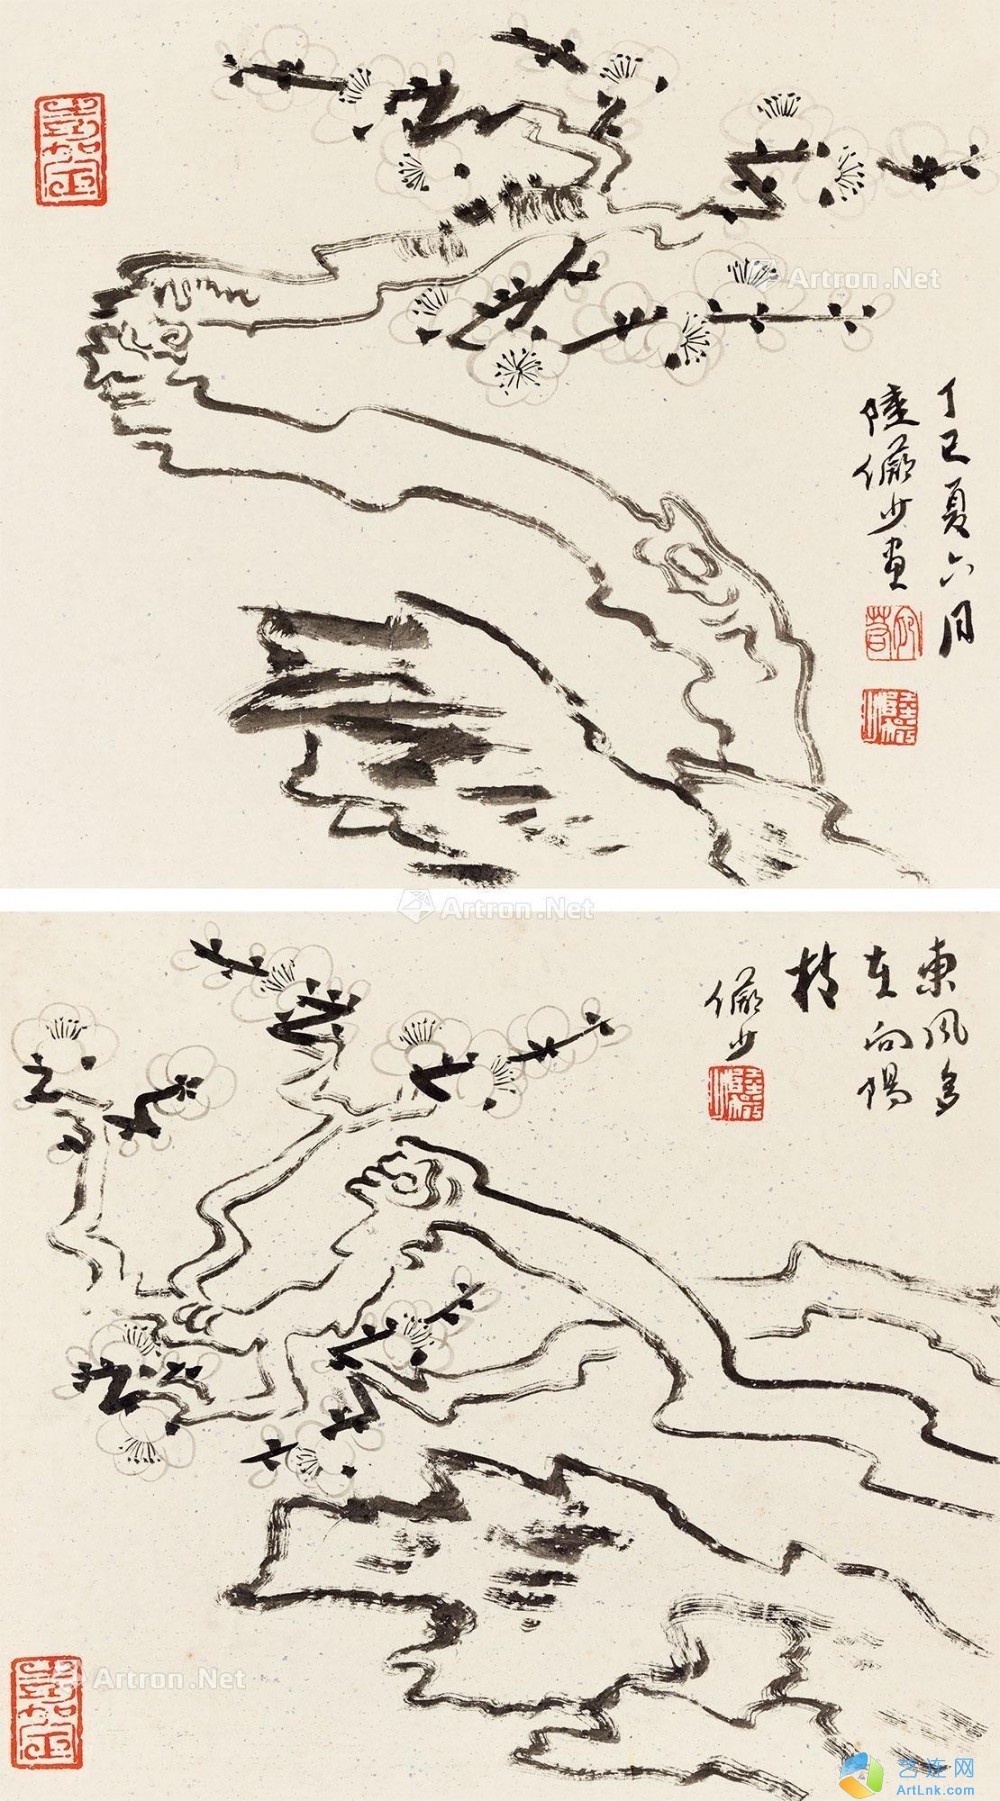 嘉定
Artron.Net
丁巳夏六月
陸儼少画
Artron.Net
東風多
在向陽
枝
儼少
嘉定
Artron.Net
艺连网
ArtLnk.com